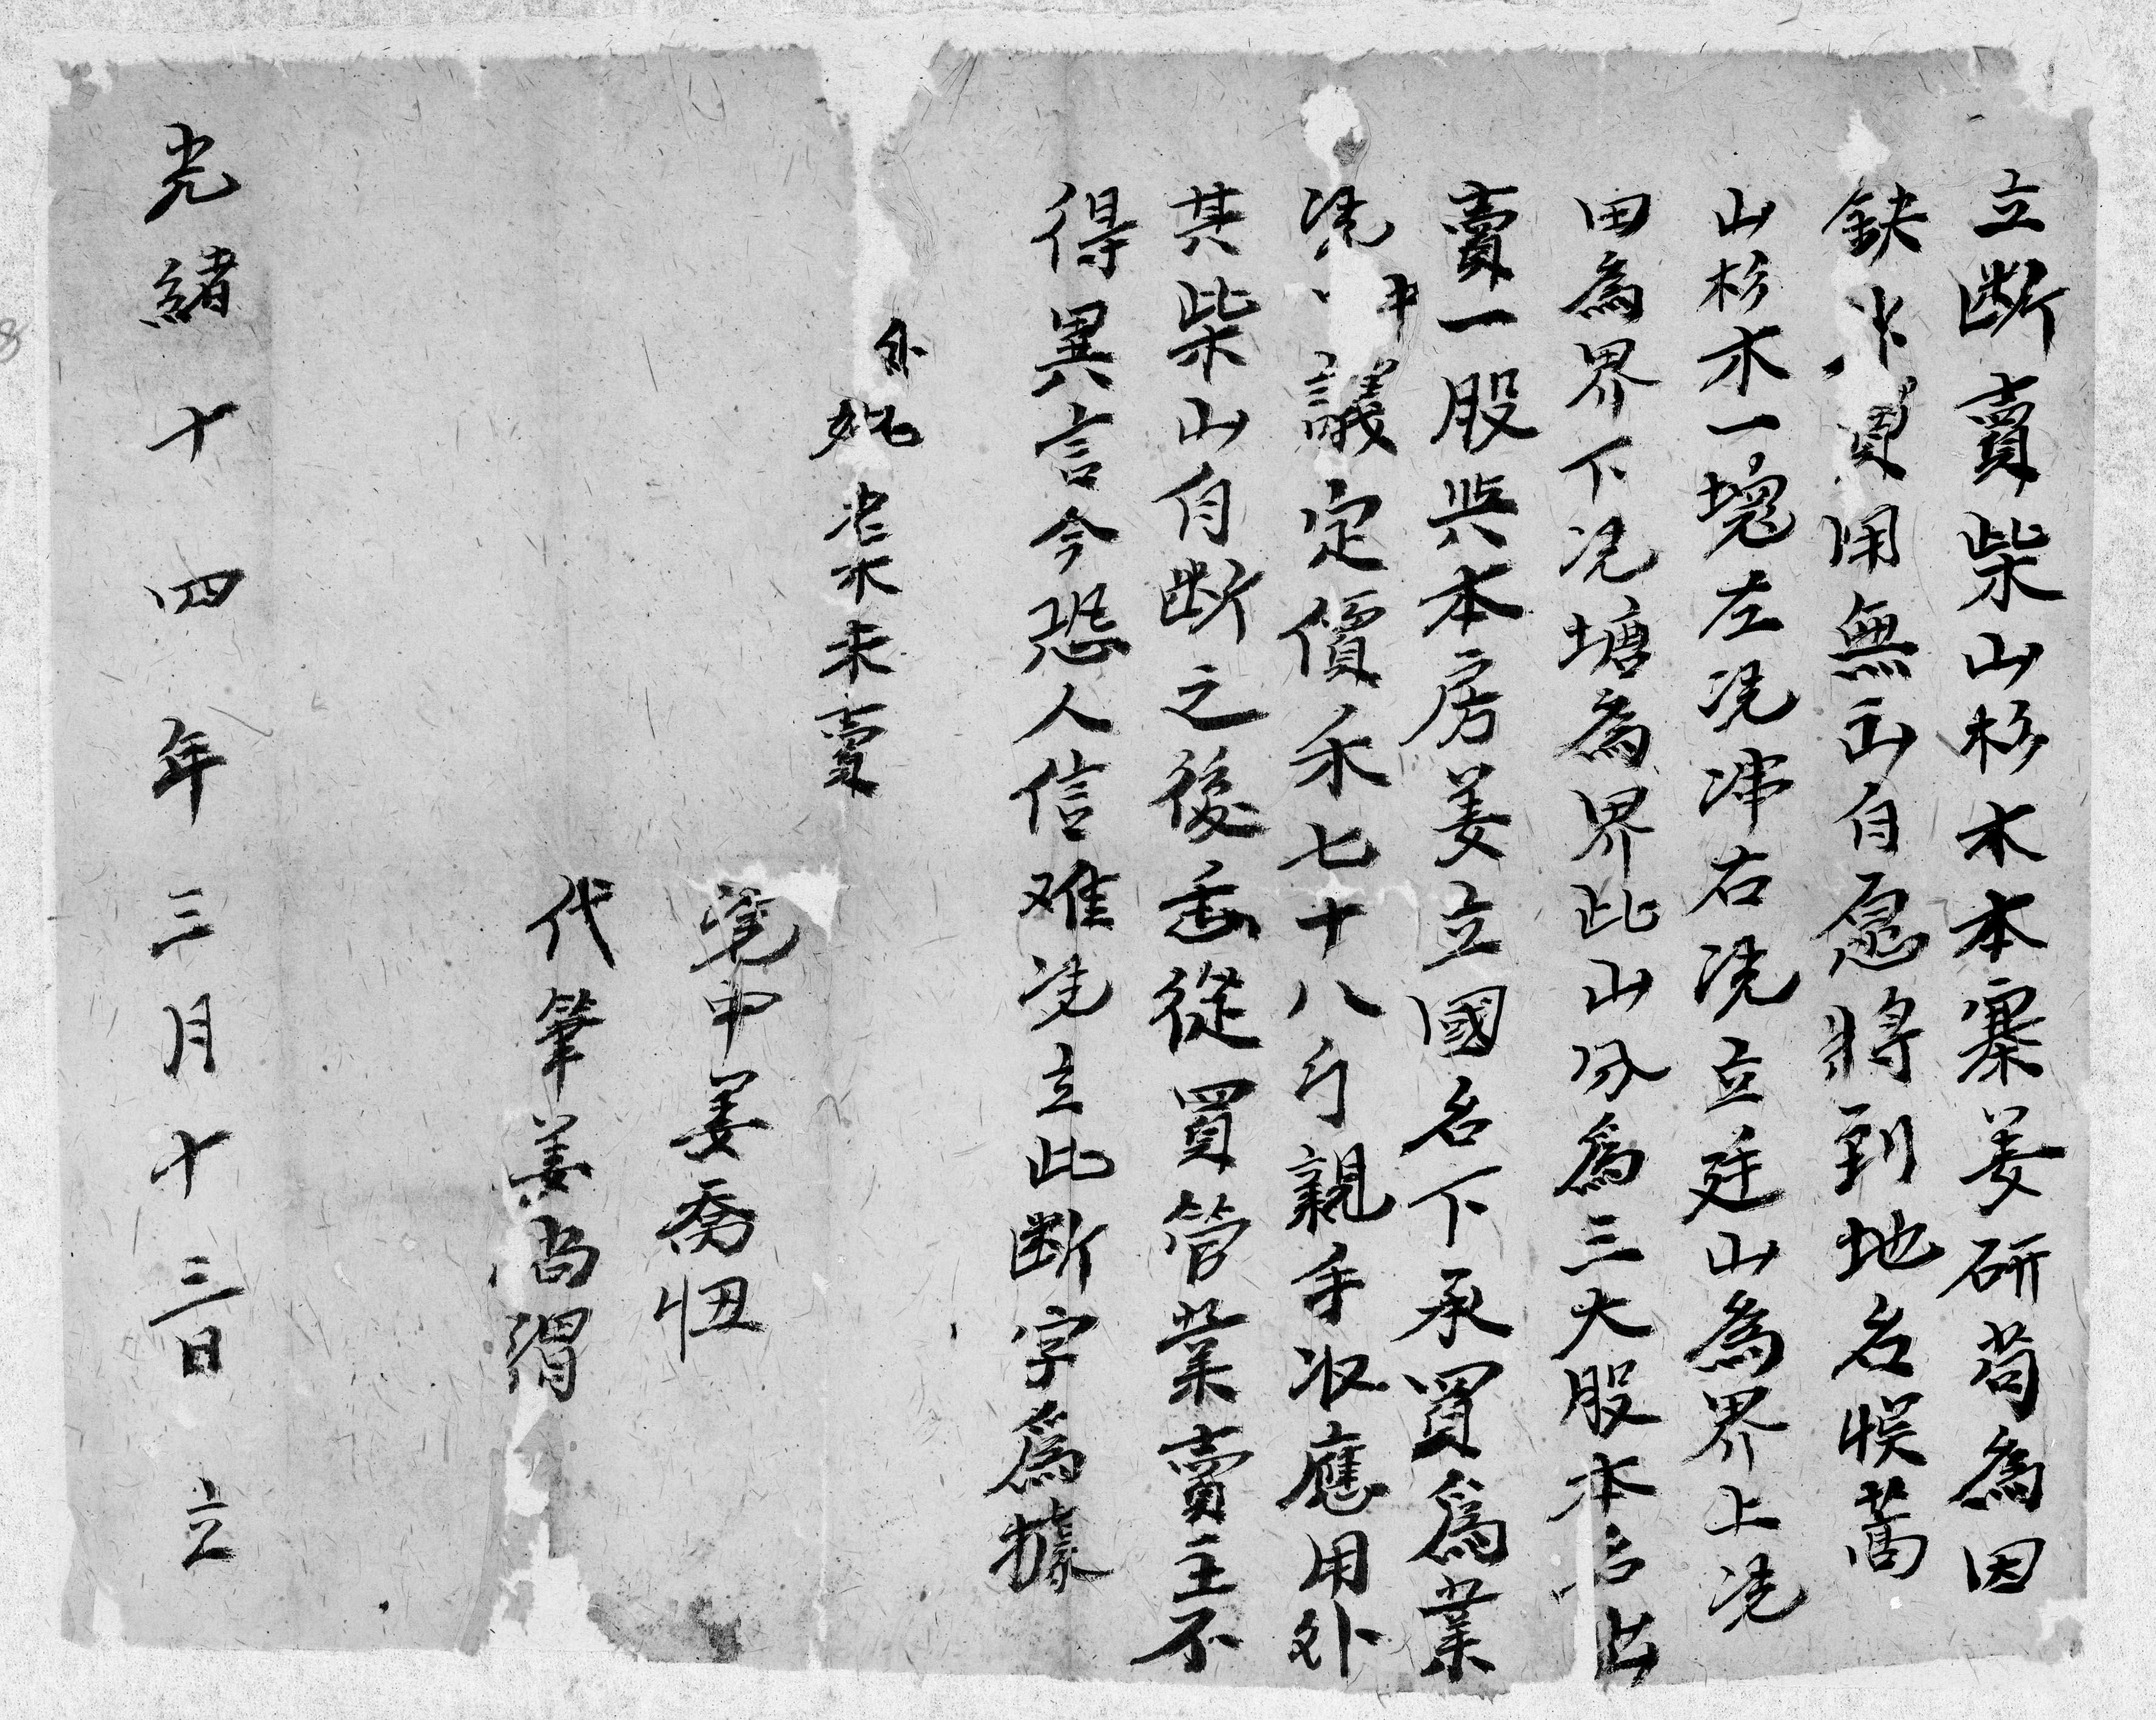 立断賣柴山杉木本寨姜研苟為因
缺少買用無出自愿將到地名候蒿
山杉木一塊左凴沖右凴立廷山為界上凴
田為界下凴塘為界此山分為三大股本名出
賣一股與本房姜立國名下承買為業
凴中議定價禾七十八斤親手收應用外
其柴山自断之後丢從買管業賣主不
得異言今恐人信难凴立此断字為據
外
柴未賣
凴中姜喬忸
代筆姜尚渭
光緒十四年三月十三日立